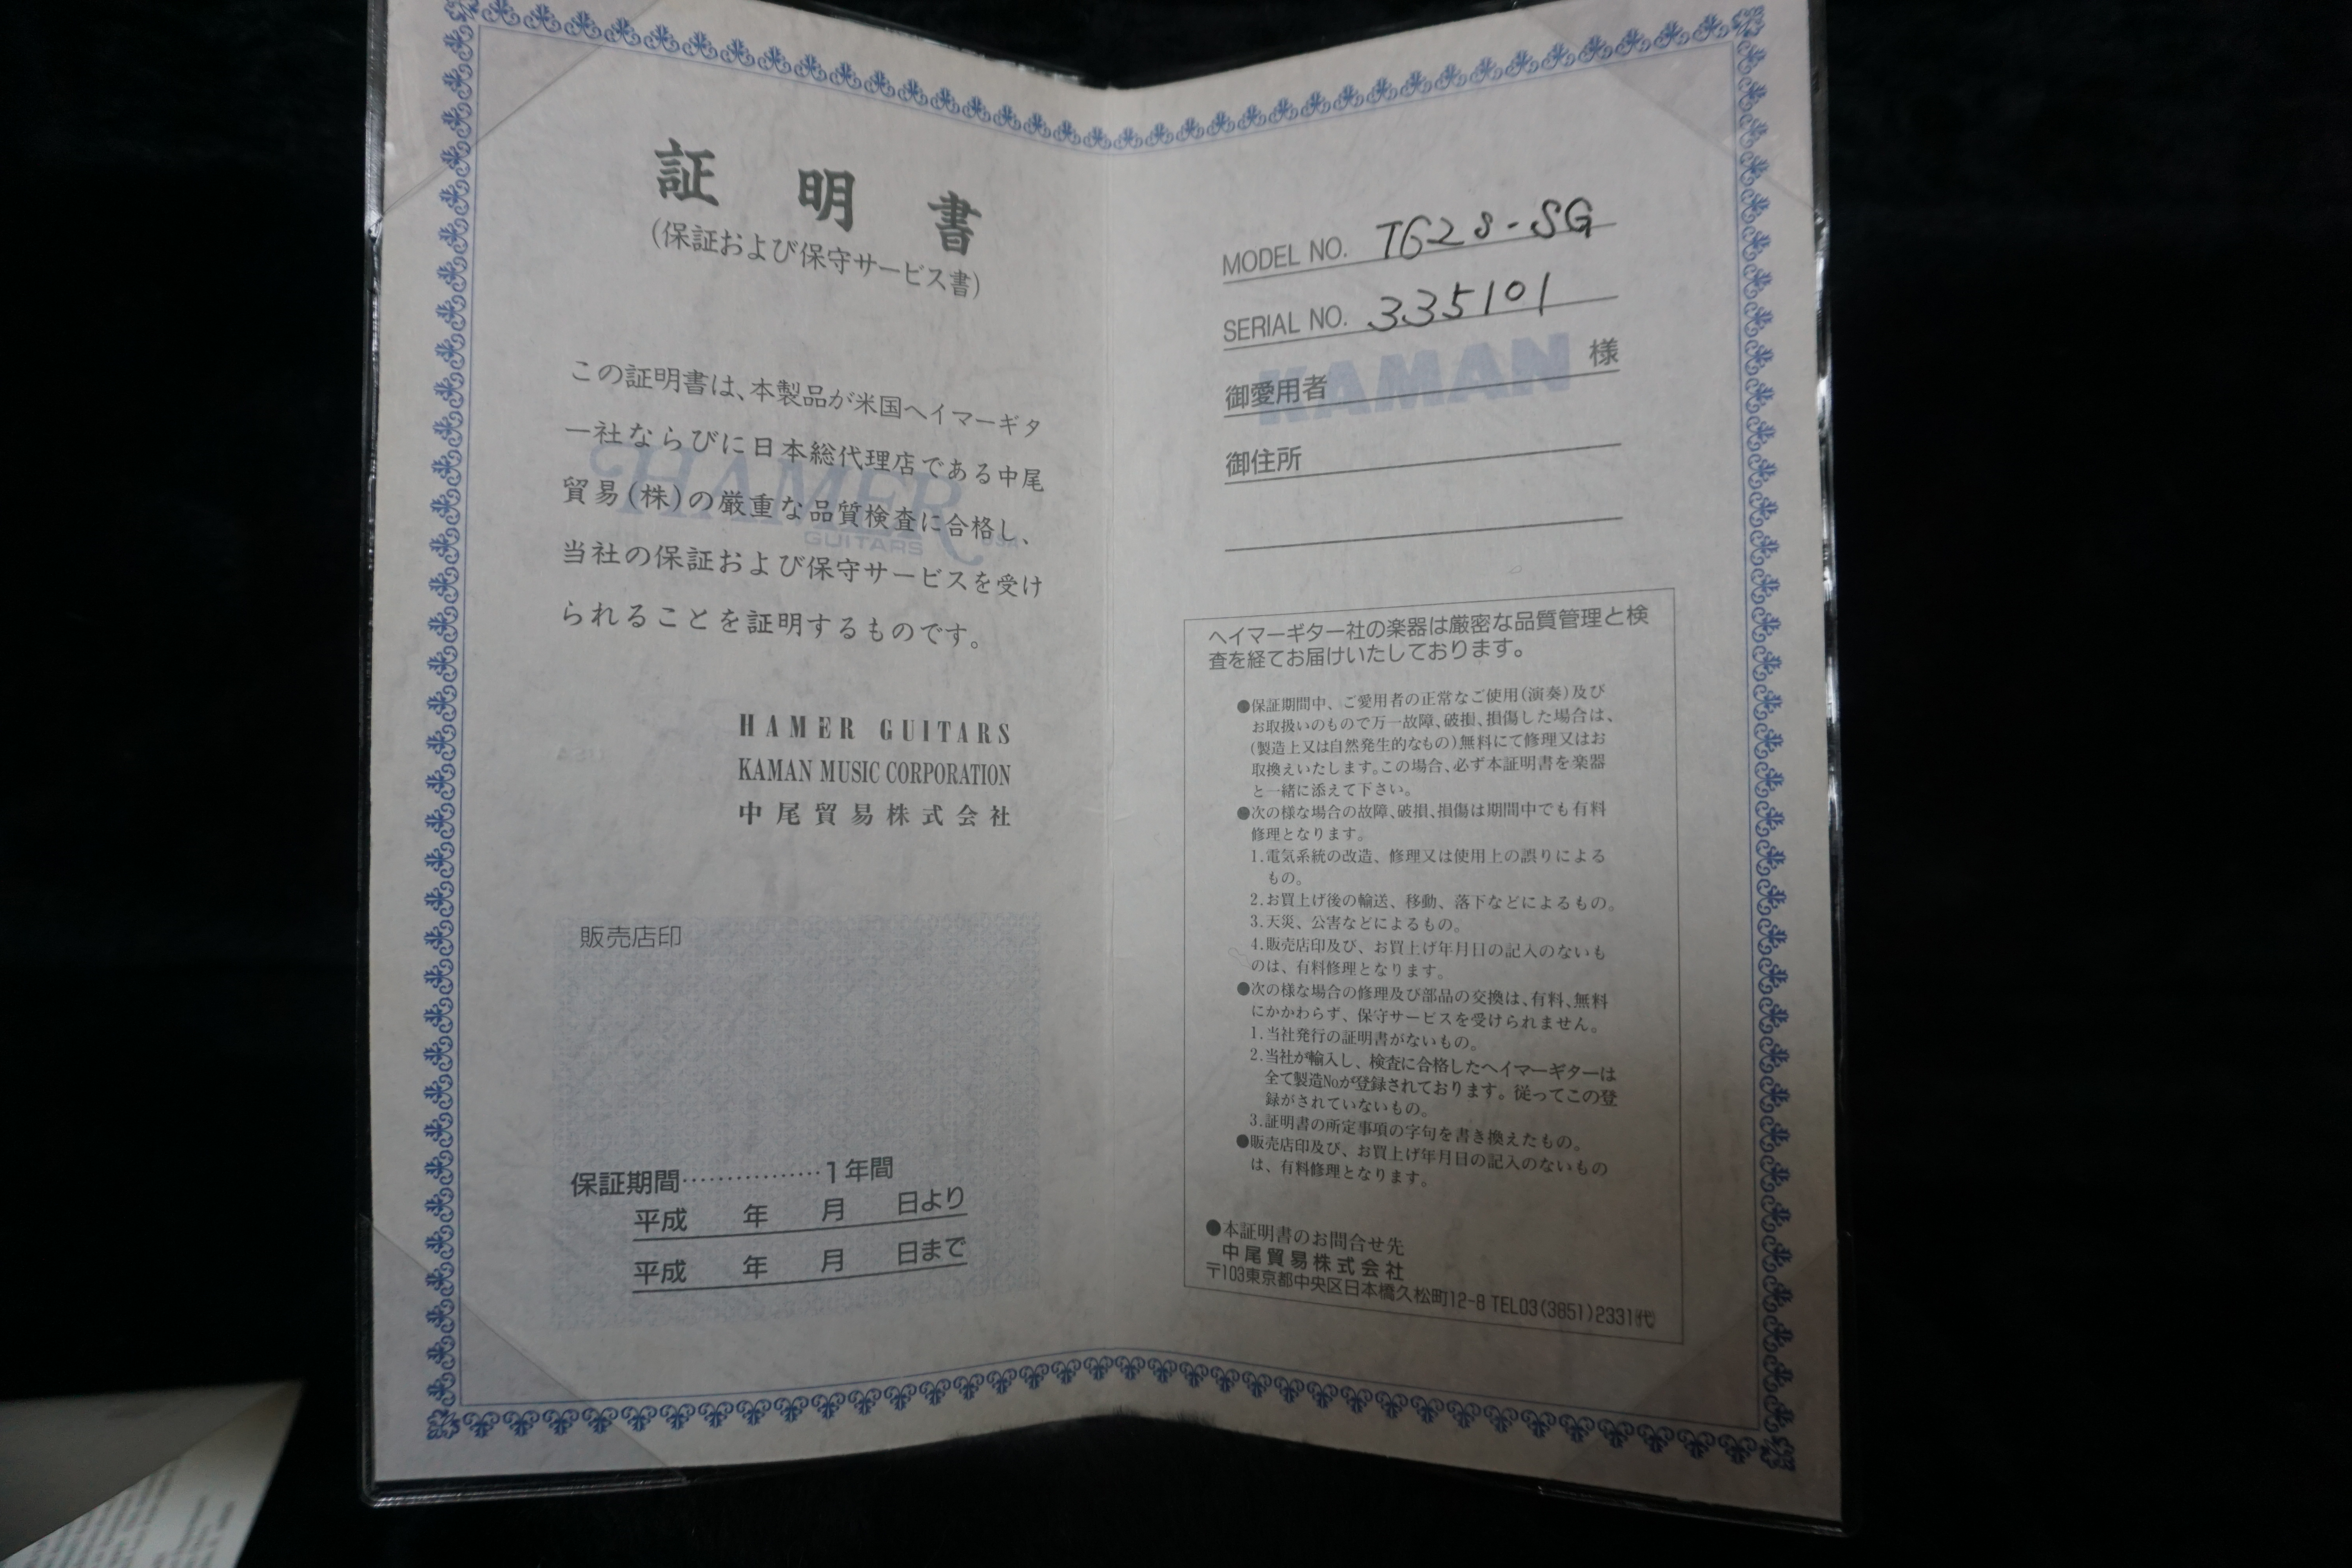 証明書
(保証および保守サービス書)
この証明書は、本製品が米国ヘイマーギタ
ー社ならびに日本総代理店である中尾
貿易(株)の厳重な品質検査に合格し、
当社の保証および保守サービスを受け
られることを証明するものです。
HAMER
GUITARS USA
HAMER GUITARS
KAMAN MUSIC CORPORATION
中尾貿易株式会社
販売店印
保証期間……………1年間
平成 年 月 日より
平成 年 月 日まで
MODEL NO. TG28-SG
SERIAL NO. 335101
KAMAN
御愛用者 様
御住所
ヘイマーギター社の楽器は厳密な品質管理と検
査を経てお届けいたしております。
●保証期間中、ご愛用者の正常なご使用(演奏)及び
お取扱いのもので万一故障、破損、損傷した場合は、
(製造上又は自然発生的なもの)無料にて修理又はお
取換えいたします。この場合、必ず本証明書を楽器
と一緒に添えて下さい。
●次の様な場合の故障、破損、損傷は期間中でも有料
修理となります。
1.電気系統の改造、修理又は使用上の誤りによる
もの。
2.お買上げ後の輸送、移動、落下などによるもの。
3.天災、公害などによるもの。
4.販売店印及び、お買上げ年月日の記入のないも
のは、有料修理となります。
●次の様な場合の修理及び部品の交換は、有料、無料
にかかわらず、保守サービスを受けられません。
1.当社発行の証明書がないもの。
2.当社が輸入し、検査に合格したヘイマーギターは
全て製造No.が登録されております。従ってこの登
録がされていないもの。
3.証明書の所定事項の字句を書き換えたもの。
●販売店印及び、お買上げ年月日の記入のないもの
は、有料修理となります。
●本証明書のお問合せ先
中尾貿易株式会社
〒103東京都中央区日本橋久松町12-8 TEL03(3851)2331代